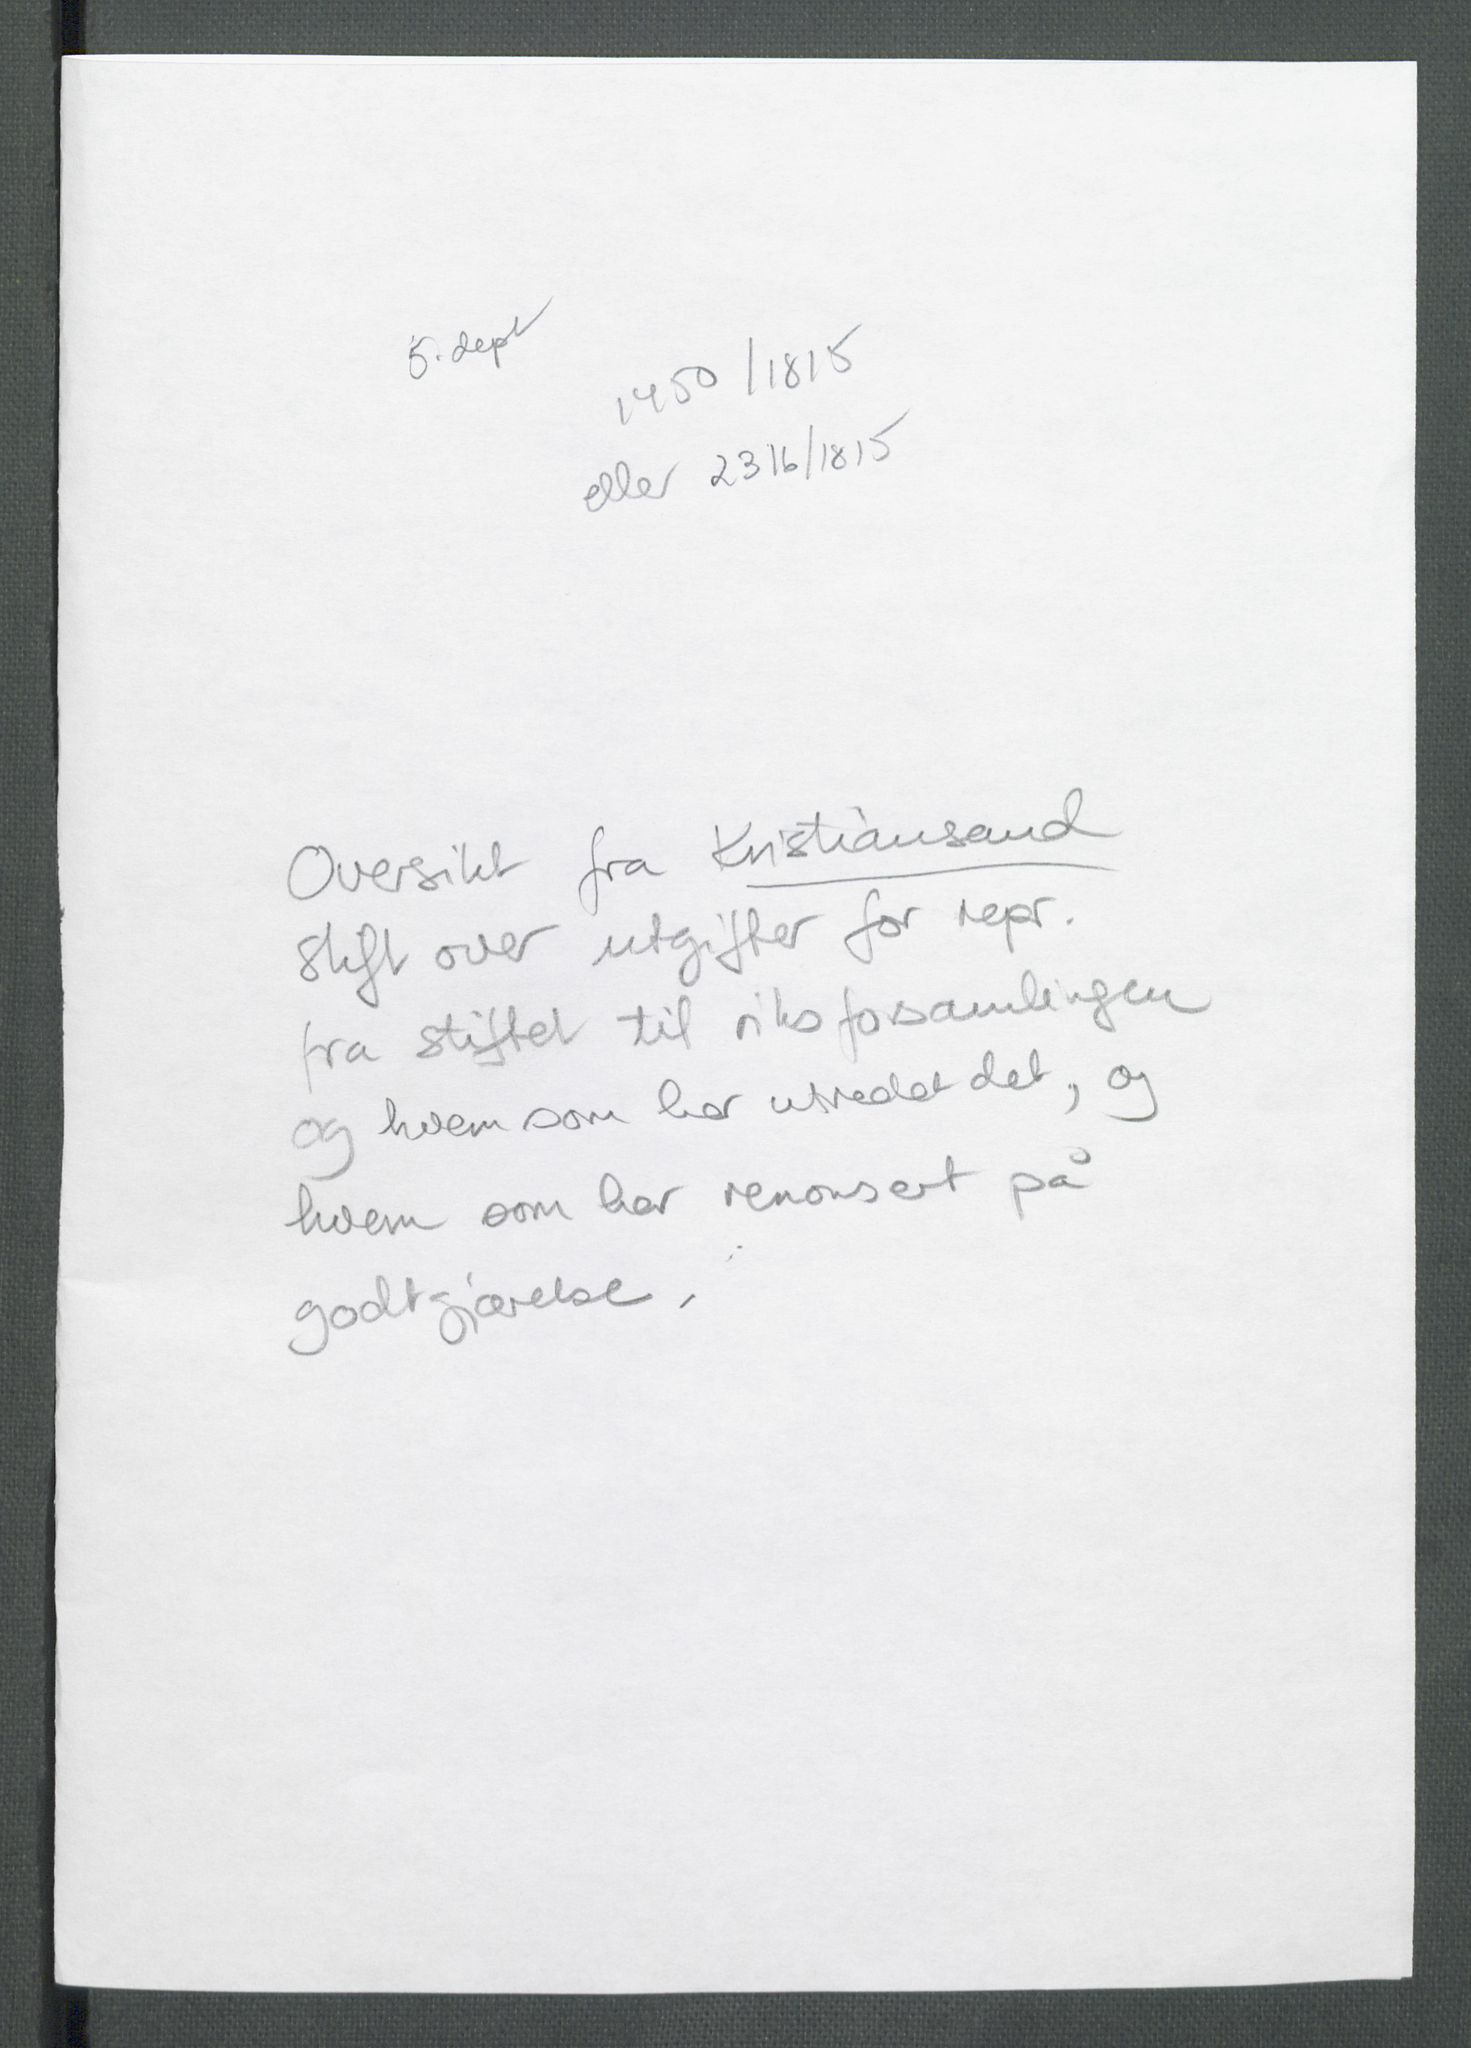 5. dept
1450/1815
eller 2316/1815
Oversikt fra Kristiansand
stift over utgifter for repr.
fra stiftet til riksforsamlingen
og hvem som har utredet det, og
hvem som har renonsert på
godtgjørelse.